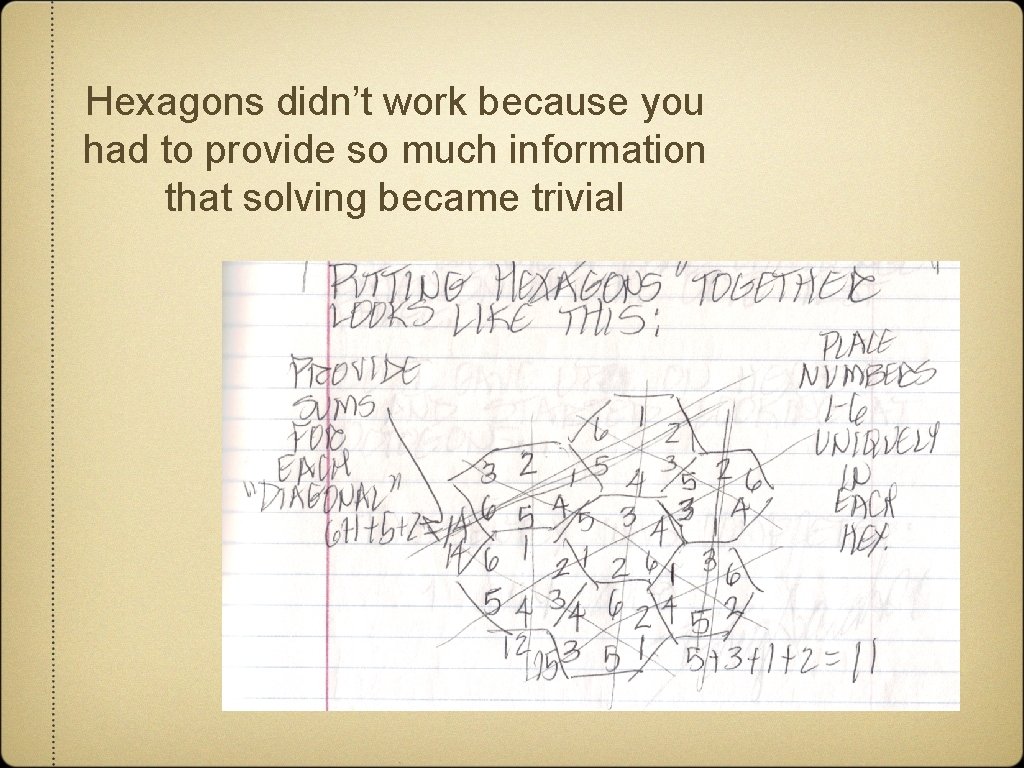 Hexagons didn’t work because you
had to provide so much information
that solving became trivial
PUTTING HEXAGONS" TOGETHER
LOOKS LIKE THIS:
PROVIDE
SUMS
FOR
EACH
"DIAGONAL"
6+1+5+2=14
PLACE
NUMBERS
1-6
UNIQUELY
IN
EACH
HEX.
6 1 2
3 2 1 5 4 3 5 2 6
6 5 4 5 3 4 3 1 4
14 6 1 2 1 2 6 1 3 6
5 4 3 4 6 2 4 5 2
12 3 5 1
5+3+1+2=11